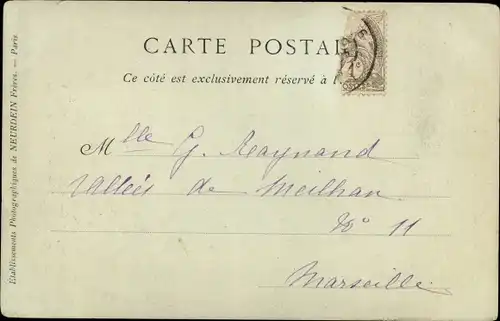 CARTE POSTAL
Ce côté est exclusivement réservé à l
Mlle G. Raynaud
Vallées de Meilhan
No 11
Marseille
Etablissements Photographiques de NEURDEIN Frères. — Paris